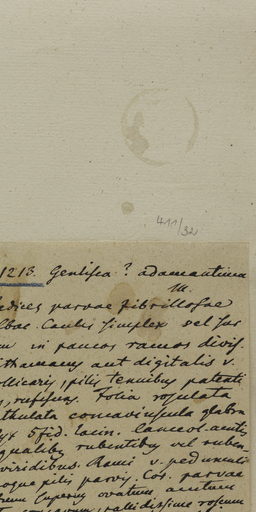 411/32
1213. Genlisea? adamantina
M.
parvae fibrillosae
Caulis simplex vel sur
in paucos ramos divis
aut digitalis v.
pollicaris, pilis tenuibus patenti
rufescens. Folia rosulata
spathulata concaviuscula glabra
5fid. lacin. lanceol. acutis
aequalibus rubentibus vel ruben
viridibus. Rami v. pedunculi
pilis parvis. Cor. parvae
superius ovatum acutum
pallidissime roseum